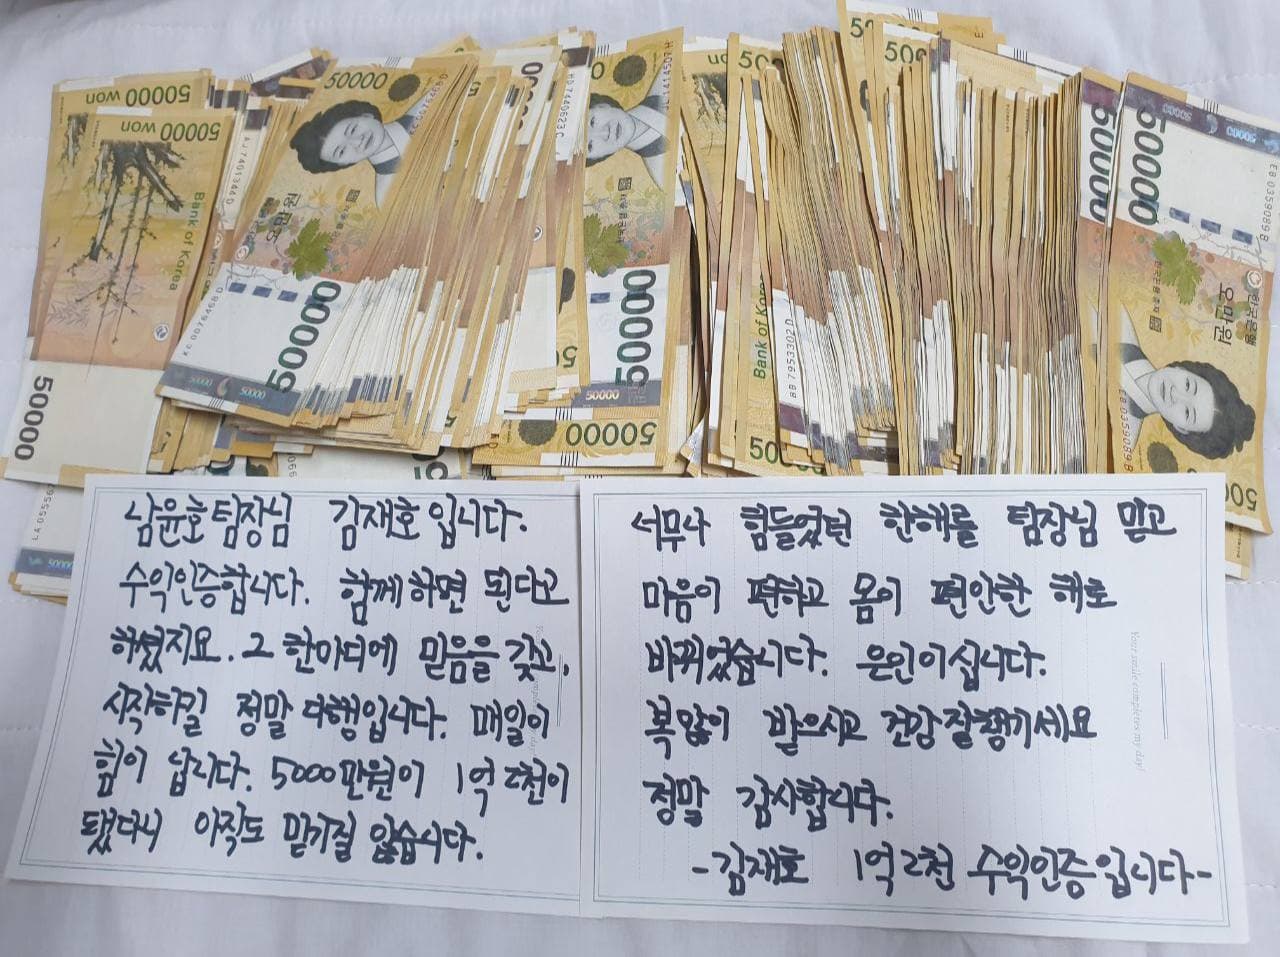 남윤호팀장님 김재호입니다.
수익인증합니다. 함께하면 된다고
하셨지요. 그 한마디에 믿음을 갖고,
시작하길 정말 다행입니다. 매일이
힘이 납니다. 5000만원이 1억 2천이
됐다니 아직도 믿기질 않습니다.
너무나 힘들었던 한해를 팀장님 믿고
마음이 편하고 몸이 편안한 해로
바뀌었습니다. 은인이십니다.
복많이 받으시고 건강 잘챙기세요
정말 감사합니다.
-김재호 1억2천 수익인증입니다-
Your smile completes my day!
50000 won
50000 won
Bank of Korea
50000
50000
KC 0076468 D
50000
50000
50000
50000
Bank of Korea
BB 7953302 D
50000
50000
EB 0359089 B
한국은행
오만원
EB 0359089 B